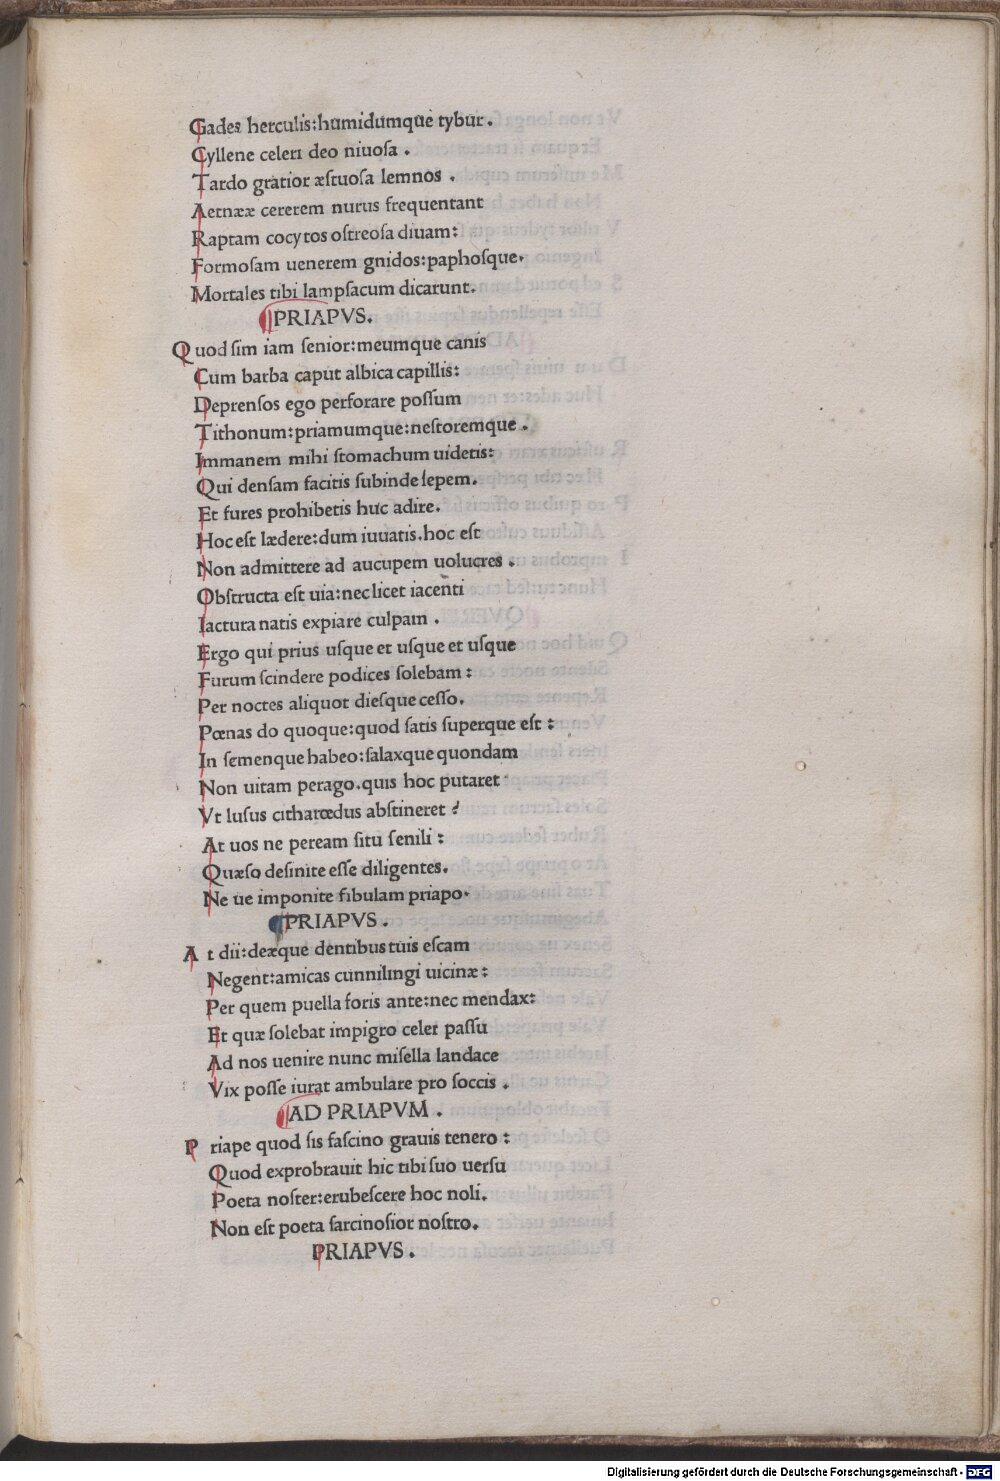 Gades herculis:humidumque tybur.
Cyllene celeri deo niuosa.
Tardo gratior æstuosa lemnos.
Aetnææ cererem nurus frequentant
Raptam cocytos ostreosa diuam:
Formosam uenerem gnidos:paphosque.
Mortales tibi lampsacum dicarunt.
PRIAPVS.
Quod sim iam senior:meumque canis
Cum barba caput albica capillis:
Deprensos ego perforare possum
Tithonum:priamumque:nestoremque.
Immanem mihi stomachum uidetis:
Qui densam facitis subinde sepem.
Et fures prohibetis huc adire.
Hoc est lædere:dum iuuatis.hoc est
Non admittere ad aucupem uolucres.
Obstructa est uia:nec licet iacenti
Iactura natis expiare culpam.
Ergo qui prius usque et usque et usque
Furum scindere podices solebam:
Per noctes aliquot diesque cesso.
Pœnas do quoque:quod satis superque est:
In semenque habeo:salaxque quondam
Non uitam perago.quis hoc putaret
Vt lusus citharœdus abstineret?
At uos ne peream situ senili:
Quæso desinite esse diligentes.
Ne ue imponite fibulam priapo.
PRIAPVS.
At dii:deæque dentibus tuis escam
Negent:amicas cunnilingi uicinæ:
Per quem puella foris ante:nec mendax:
Et quæ solebat impigro celer passu
Ad nos uenire nunc misella landace
Vix posse iurat ambulare pro soccis.
AD PRIAPVM.
Priape quod sis fascino grauis tenero:
Quod exprobrauit hic tibi suo uersu
Poeta noster:erubescere hoc noli.
Non est poeta sarcinosior nostro.
PRIAPVS.
Digitalisierung gefördert durch die Deutsche Forschungsgemeinschaft - DFG